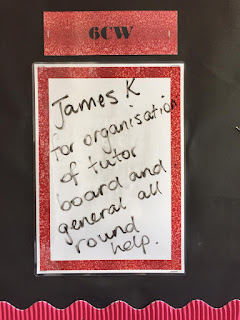 6CW
James K
for organisation
of tutor
board and
general all
round
help.